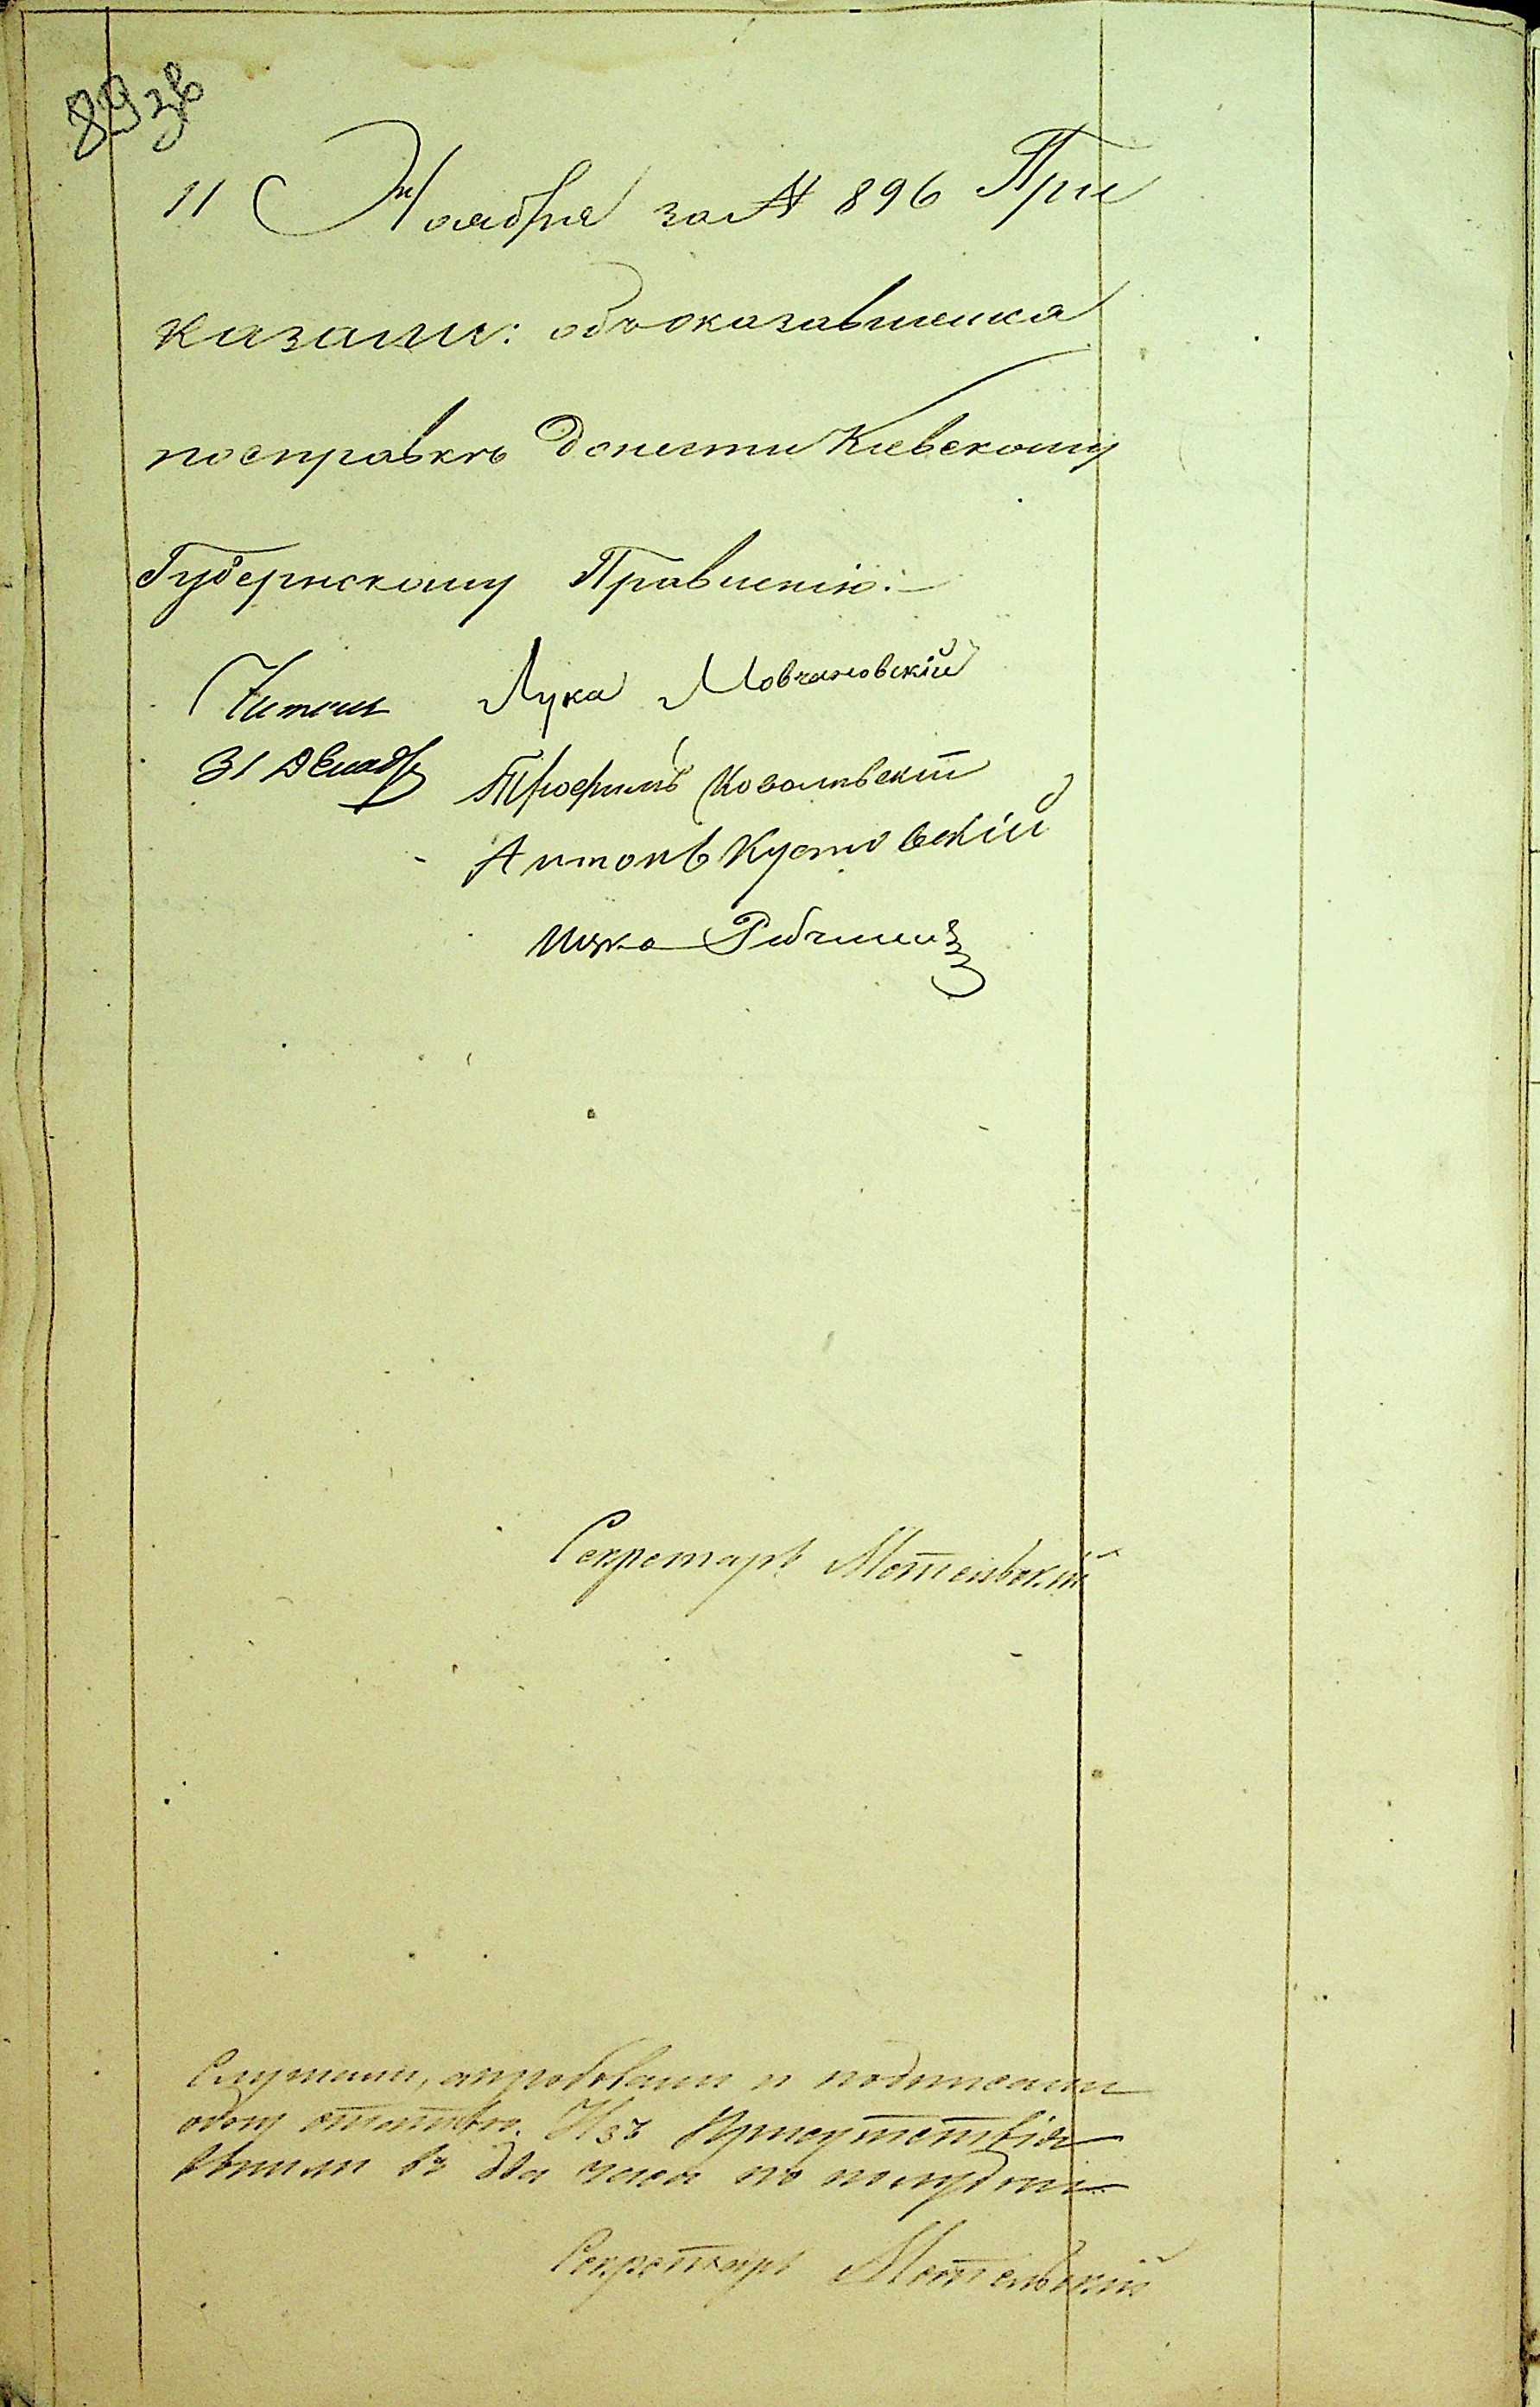 89 зв
11 Ноября за № 896 При
казали: объ оказавшемся
посправкѣ донести Кіевскому
Губернскому Правленію:
Читали Лука Мовчановскій
31 Декабр Трофимъ Ковальскій
Антонъ Кустовскій
Ицко
Секретарь Мотельскій
Слушали, апробовали и подписали
одну статью. Изъ Присутствія
вышли въ два часа по полудни
Секретарь Мотельскій